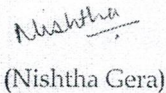 Nishtha
(Nishtha Gera)